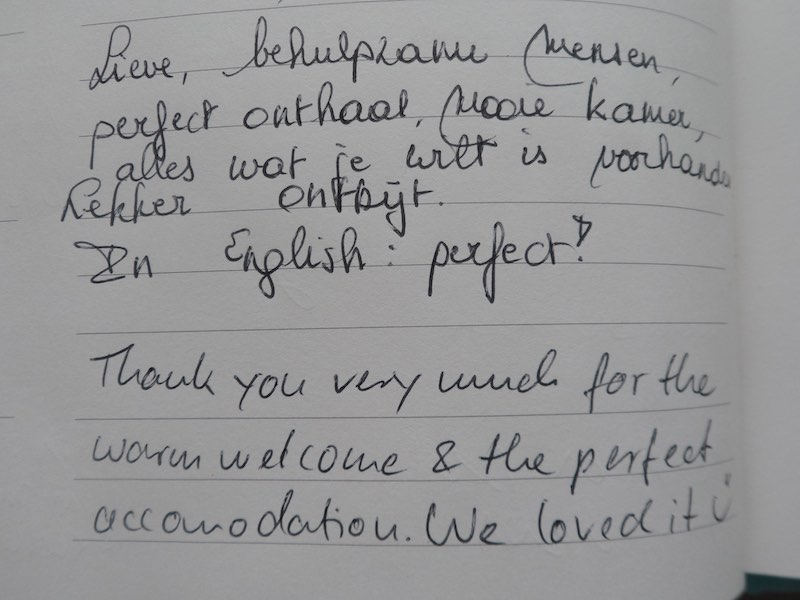 Lieve, behulpzame mensen,
perfect onthaal, mooie kamer,
alles wat je wilt is voorhanden
Lekker ontbijt.
In English: perfect!
Thank you very much for the
warm welcome & the perfect
accomodation. We loved it ü